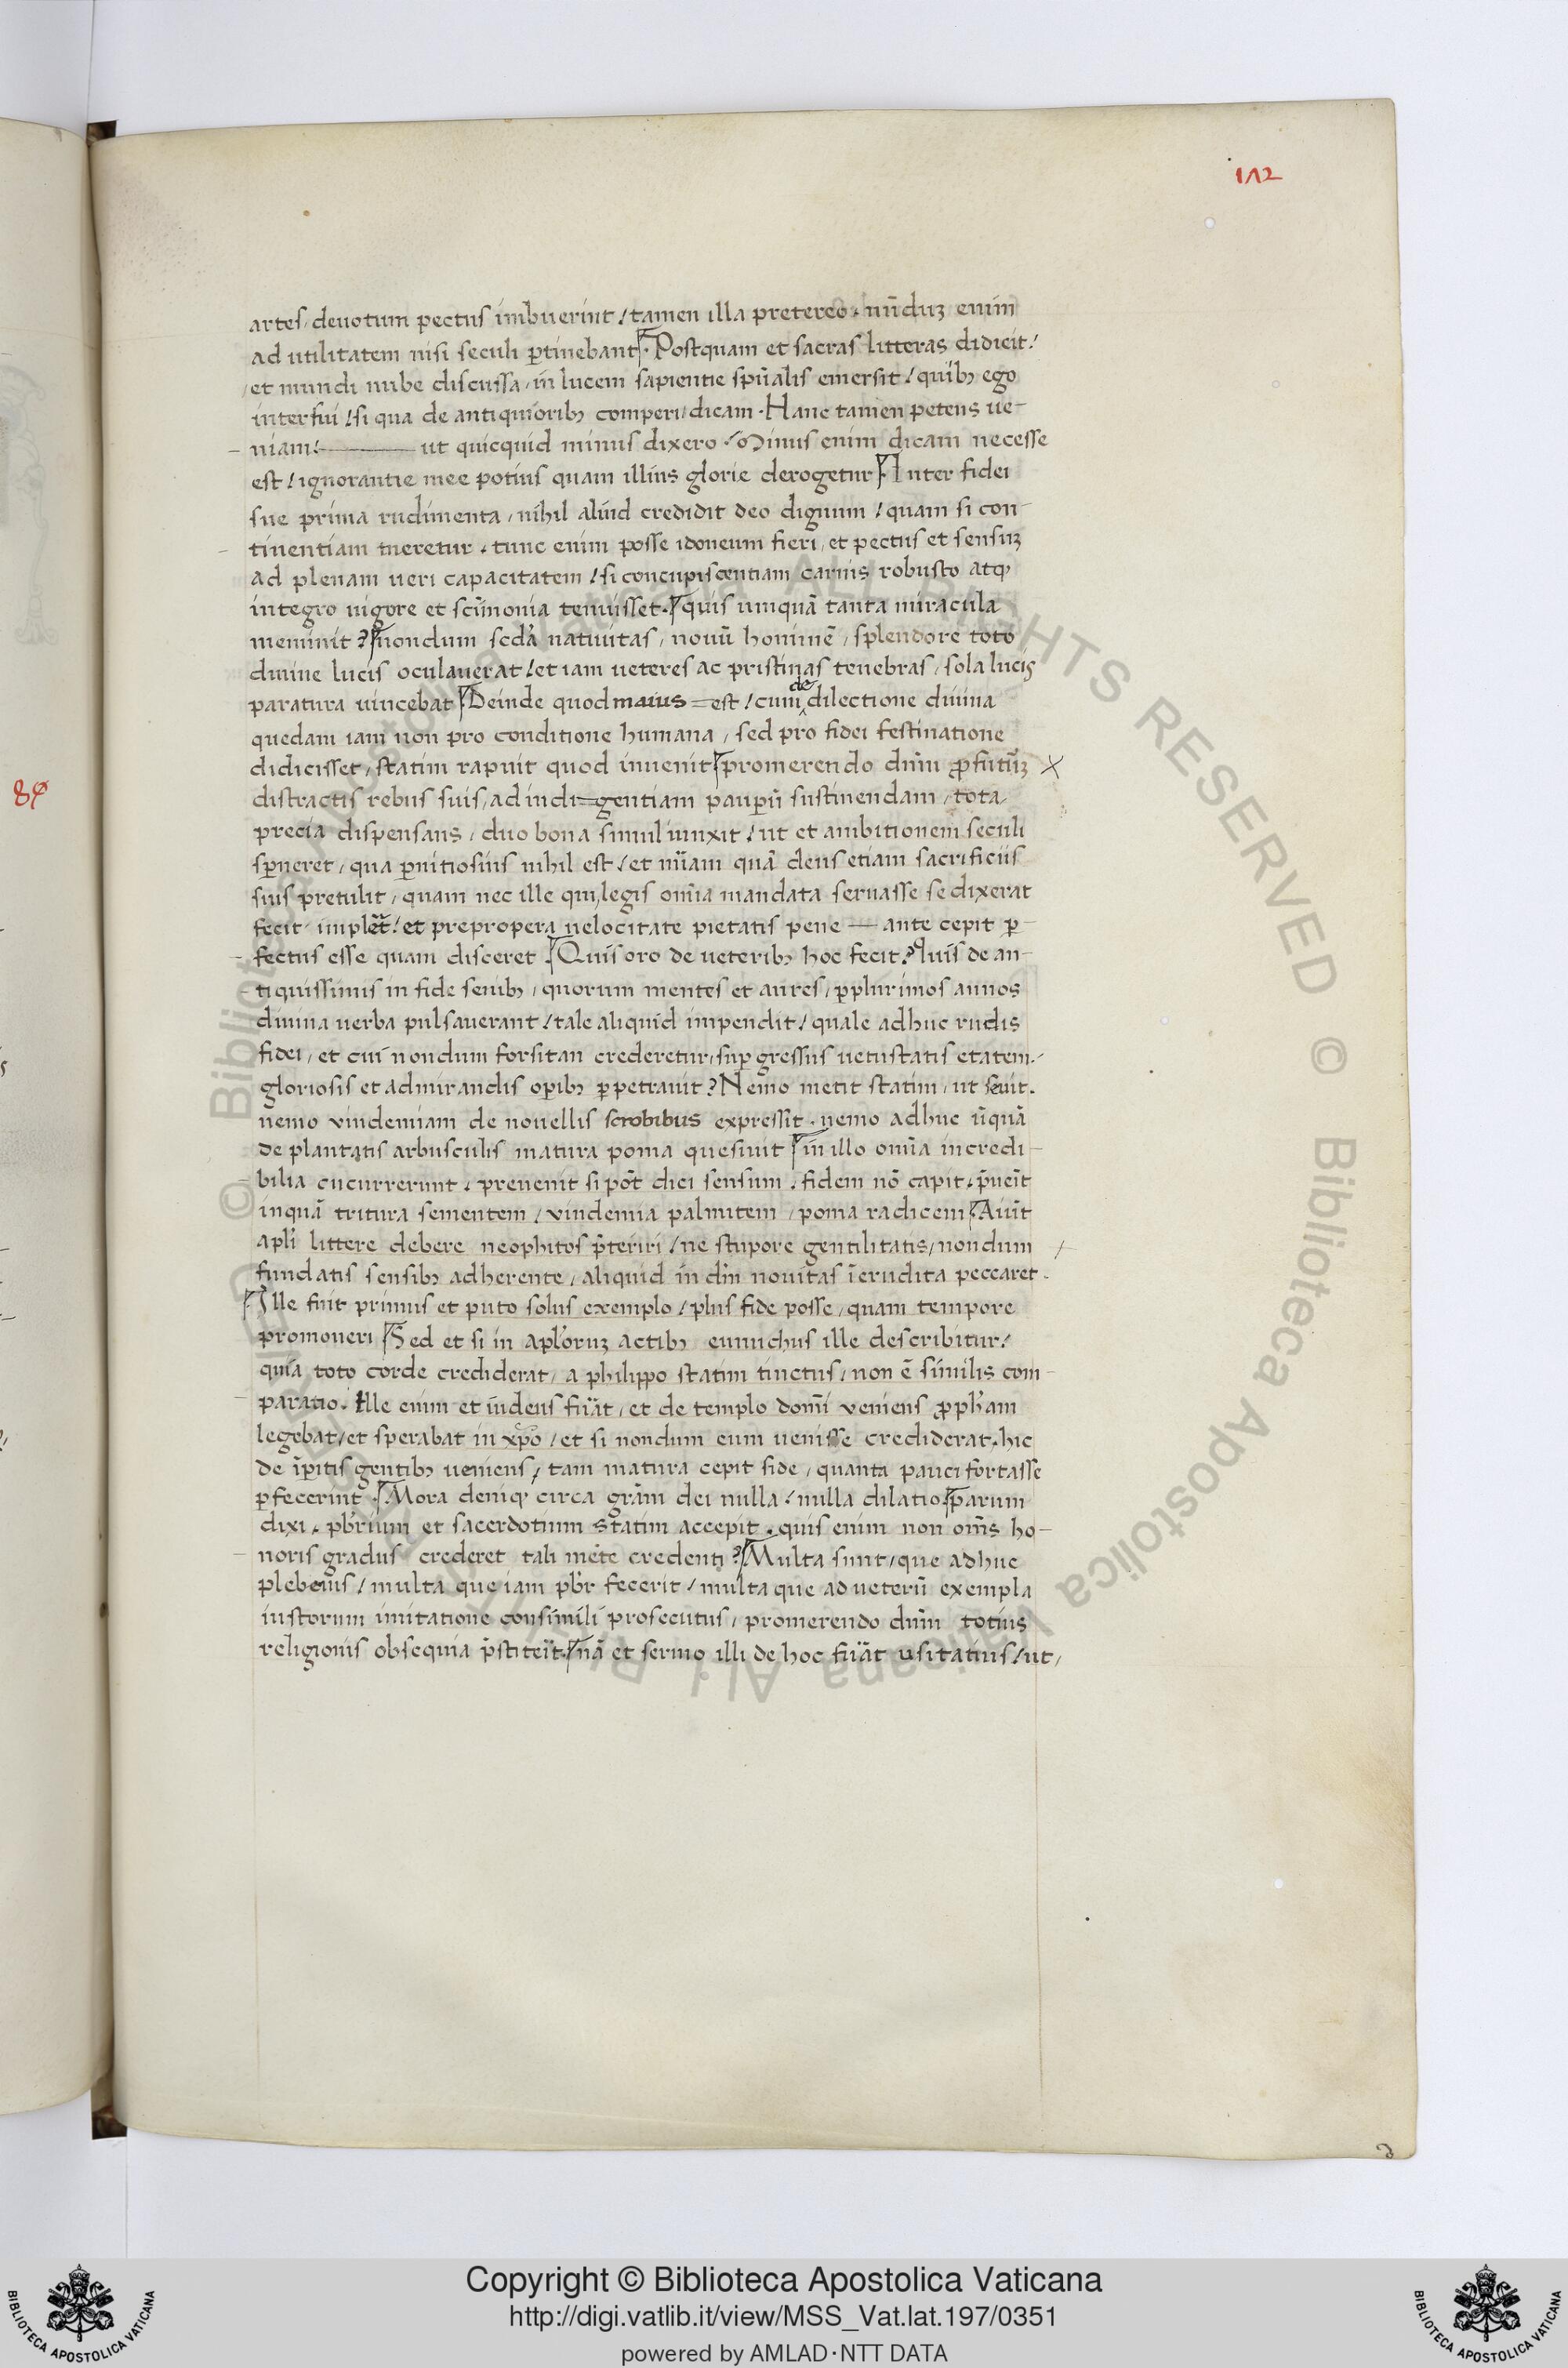 112
artes, deuotum pectus imbuerint / tamen illa pretereo. nūduꝫ enim
ad utilitatem nisi seculi ꝑtinebant. Postquam et sacras litteras didicit /
et mundi nube discussa, in lucem sapientie spūalis emersit / quibꝫ ego
interfui / si qua de antiquioribꝫ comperi / dicam. Hanc tamen petens ue-
niam / ut quicquid minus dixero / Minus enim dicam necesse
est / ignorantie mee potius quam illius glorie derogetur Inter fidei
sue prima rudimenta, nihil aliud credidit deo dignum / quam si con-
tinentiam tueretur. tunc enim posse idoneum fieri, et pectus et sensuꝫ
ad plenam ueri capacitatem / si concupiscentiam carnis robusto atqꝫ
integro uigore et sc̄imonia tenuisset. quis umquā tanta miracula
meminit? nondum scd̄a natiuitas, nouū hominē, splendore toto
diuine lucis oculauerat / et iam ueteres ac pristinas tenebras, sola lucis
paratura uincebat Deinde quod maius est / cum de dilectione diuina
quedam iam non pro conditione humana, sed pro fidei festinatione
didicisset, statim rapuit quod inuenit promerendo dn̄m ꝓfutūꝫ
distractis rebus suis, ad indigentiam pauꝑū sustinendam, tota
precia dispensans, duo bona simul iunxit / ut et ambitionem seculi
sꝑneret, qua ꝑnitiosius nihil est / et mīam quā deus etiam sacrificiis
suis pretulit, quam nec ille qui legis om̄ia mandata seruasse se dixerat
fecit implēt / et prepropera uelocitate pietatis pene ante cepit ꝑ-
fectus esse quam disceret. Quis oro de ueteribꝫ hoc fecit? Quis de an-
tiquissimis in fide senibꝫ, quorum mentes et aures, ꝑplurimos annos
diuina uerba pulsauerant / tale aliquid impendit / quale adhuc rudis
fidei, et cui nondum forsitan crederetur, suꝑgressus uetustatis etatem.
gloriosis et admirandis oꝑibꝫ ꝑpetrauit? Nemo metit statim, ut seuit.
nemo vindemiam de nouellis scrobibus expressit. nemo adhuc ūquā
de plantatis arbusculis matura poma quesiuit in illo om̄ia incredi-
bilia cucurrerunt. preuenit si pōt dici sensum. fidem nō capit. p̄ueīt
inquā tritura sementem / vindemia palmitem, poma radicem Aiūt
apl̄i littere debere neophitos p̄teriri / ne stupore gentilitatis, nondum
fundatis sensibꝫ adherente, aliquid in dm̄ nouitas īerudita peccaret.
Ille fuit primus et puto solus exemplo / plus fide posse, quam tempore
promoueri Sed et si in apl̄oruꝫ actibꝫ eunuchus ille describitur /
quia toto corde crediderat, a philippo statim tinctus, non ē similis com-
paratio. Ille enim et iudeus fuāt, et de templo domī veniens ꝓph̄am
legebat, et sperabat in xp̄o / et si nondum eum uenisse crediderat. hic
de īpitis gentibꝫ ueniens, tam matura cepit fide, quanta pauci fortasse
ꝑfecerint. Mora deniqꝫ circa grām dei nulla / nulla dilatio parum
dixi. pbr̄ium et sacerdotium statim accepit. quis enim non om̄s ho-
noris gradus crederet tali mēte credenti? Multa sunt, que adhuc
plebeius / multa que iam pbr̄ fecerit / multa que ad ueterū exempla
iustorum imitatione consimili prosecutus, promerendo dn̄m totius
religionis obsequia p̄stiteīt. nā et sermo illi de hoc fuāt usitatius / ut,
Copyright © Biblioteca Apostolica Vaticana
http://digi.vatlib.it/view/MSS_Vat.lat.197/0351
powered by AMLAD·NTT DATA